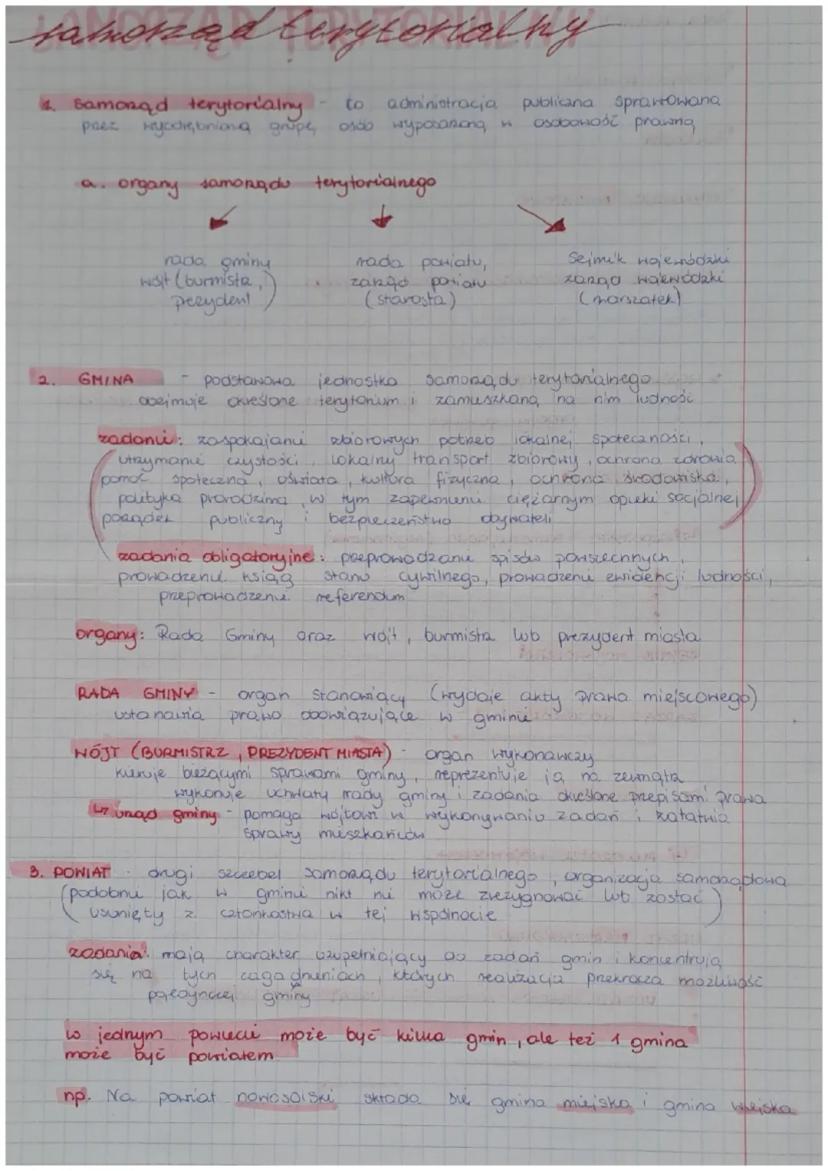 samorząd terytorialny
1. Samorząd terytorialny - to administracja publiczna sprawowana
przez wyodrębnioną grupę osób wyposażoną w osobowość prawną
a. organy samorządu terytorialnego
rada gminy rada powiatu, Sejmik wojewódzki
wójt (burmistrz, zarząd powiatu zarząd wojewódzki
prezydent) (starosta) (marszałek)
2. GMINA - podstawowa jednostka samorządu terytorialnego
obejmuje określone terytorium i zamieszkaną na nim ludność
zadania: zaspokajanie zbiorowych potrzeb lokalnej społeczności,
(utrzymanie czystości, lokalny transport zbiorowy, ochrona zdrowia,
pomoc społeczna, oświata, kultura fizyczna, ochrona środowiska,
polityka prorodzinna w tym zapewnienie ciężarnym opieki socjalnej
porządek publiczny i bezpieczeństwo obywateli)
zadania obligatoryjne: przeprowadzanie spisów powszechnych,
prowadzenie ksiąg stanu cywilnego, prowadzenie ewidencji ludności,
przeprowadzenie referendum
organy: Rada Gminy oraz wójt, burmistrz lub prezydent miasta
RADA GMINY - organ stanowiący (wydaje akty prawa miejscowego)
ustanawia prawo obowiązujące w gminie
WÓJT (BURMISTRZ, PREZYDENT MIASTA) - organ wykonawczy
kieruje bieżącymi sprawami gminy, reprezentuje ją na zewnątrz
wykonuje uchwały rady gminy i zadania określone przepisami prawa
↳ urząd gminy - pomaga wójtowi w wykonywaniu zadań i załatwia
sprawy mieszkańców
3. POWIAT - drugi szczebel samorządu terytorialnego, organizacja samorządowa
(podobnie jak w gminie nikt nie może zrezygnować lub zostać
usunięty z członkostwa w tej wspólnocie)
zadania: mają charakter uzupełniający do zadań gmin i koncentrują
się na tych zagadnieniach, których realizacja przekracza możliwość
pojedynczej gminy
w jednym powiecie może być kilka gmin, ale też 1 gmina
może być powiatem
np. Na powiat nowosolski składa się gmina miejska i gmina wiejska